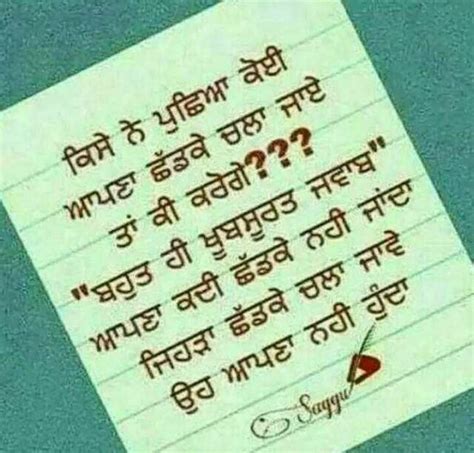 ਕਿਸੇ ਨੇ ਪੁਛਿਆ ਕੋਈ
ਆਪਣਾ ਛੱਡਕੇ ਚਲਾ ਜਾਏ
ਤਾਂ ਕੀ ਕਰੋਗੇ???
"ਬਹੁਤ ਹੀ ਖੂਬਸੂਰਤ ਜਵਾਬ"
ਆਪਣਾ ਕਦੀ ਛੱਡਕੇ ਨਹੀ ਜਾਂਦਾ
ਜਿਹੜਾ ਛੱਡਕੇ ਚਲਾ ਜਾਵੇ
ਉਹ ਆਪਣਾ ਨਹੀ ਹੁੰਦਾ
Saggu